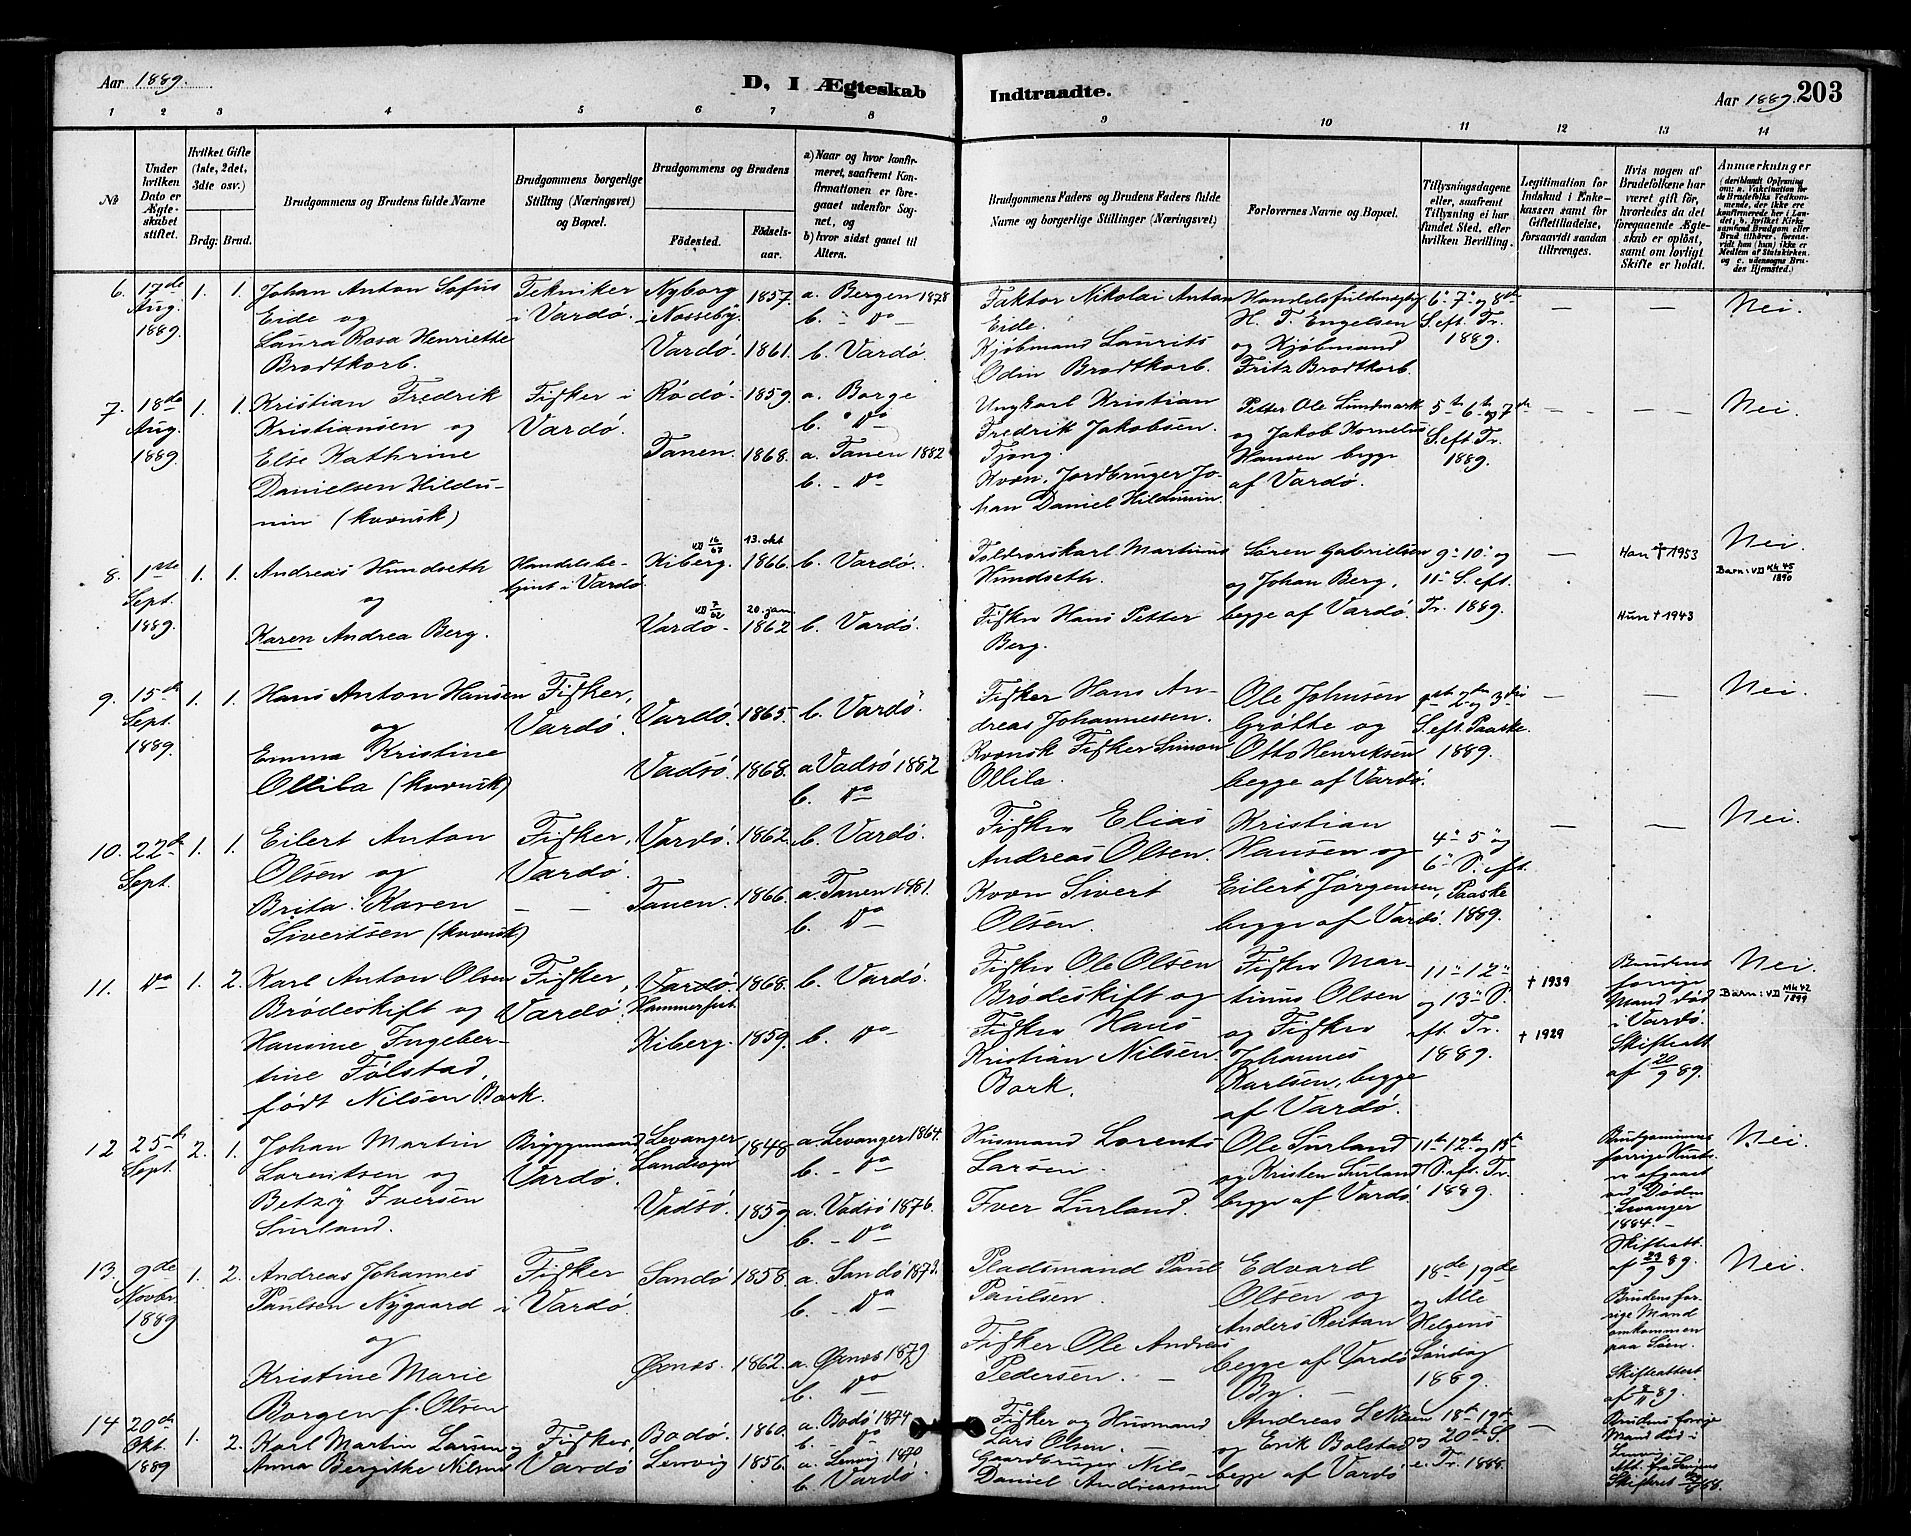 Aar 1889.
D, I Ægteskab
Indtraadte.
Aar 1889. 203
1 2 3 4 5 6 7 8 9 10 11 12 13 14
No
Under hvilken Dato er Ægteskabet stiftet.
Hvilket Gifte (1ste, 2det, 3die osv.)
Brdg: Brud.
Brudgommens og Brudens fulde Navne
Brudgommens borgerlige Stilling (Næringsvei) og Bopæl.
Brudgommens og Brudens
Födested.
Födselsaar.
a) Naar og hvor konfirmeret, saafremt Konfirmationen er foregaaet udenfor Sognet, og
b) hvor sidst gaaet til Alters.
Brudgommens Faders og Brudens Faders fulde Navne og borgerlige Stillinger (Næringsvei)
Forlovernes Navne og Bopæl.
Tillysningsdagene eller, saafremt Tillysning ei har fundet Sted, efter hvilken Bevilling.
Legitimation for Indskud i Enkekassen samt for Giftetilladelse, forsaavidt saadan tiltrænges.
Hvis nogen af Brudefolkene har været gift för, hvorledes da det foregaaende Ægteskab er oplöst, samt om lovligt Skifte er holdt.
Anmærkninger
(deriblandt Oplysning om: a. Vakcination for de Brudefolks Vedkommende, der ikke ere konfirmerede her i Landet; b. hvilket Kirkesamfund Brudgom eller Brud tilhörer, forsaavidt han (hun) ikke er Medlem af Statskirken, og c. udensogns Brudes Hjemsted.)
6. 17de Aug. 1889. 1. 1.
Johan Anton Sofus
Eide og
Laura Rosa Henriette
Brodtkorb.
Tekniker
i Vardö.
Nyborg
i Nesseby. 1857.
Vardö. 1861.
a. Bergen 1878
b. - do -
b. Vardö.
Faktor Nikolai Anton
Eide.
Kjøbmand Laurits
Odin Brodtkorb.
Handelsfuldmægtig
H. T. Engelsen
og Kjøbmand
Fritz Brodtkorb.
6" 7" og 8de
S. eft. Tr.
1889.
— —
Nei.
7. 18de Aug. 1889. 1. 1.
Kristian Fredrik
Kristiansen og
Else Kathrine
Danielsen Hildu-
nin (kvensk)
Fisker i
Vardö.
Rödö. 1859.
Tanen. 1868.
a. Borge
b. " do
a. Tanen 1882
b. - do
Ungkarl Kristian
Fredrik Jakobsen
Tjong.
Kvæn, Jordbruger Jo-
han Daniel Hildunin.
Petter Ole Lundmark
og Jakob Kornelius
Hansen begge
af Vardö.
5te 6te og 7de
S. eft. Tr.
1889.
— — —
Nei.
8. 1ste Sept. 1889. 1. 1.
Andreas Hundseth
og
Karen Andrea Berg.
Handelsbe-
tjent i Vardö
VD 16/67 13. okt
Kiberg. 1866.
VD 7/62 20. jan
Vardö 1862
b. Vardö.
b. Vardö.
Toldrorskarl Martinus
Hundseth.
Fisker Hans Petter
Berg.
Sören Gabrielsen
og Johan Berg,
begge af Vardö.
9" 10" og
11" S. eft.
Tr. 1889.
—
Han † 1953
Hun † 1943
Nei.
Barn: VD Kk 45/1890
9. 15de Sept. 1889. 1. 1.
Hans Anton Hansen
og
Emma Kristine
Ollila (kvensk)
Fisker,
Vardö.
Vardö. 1865.
Vadsö. 1868.
b. Vardö.
a. Vadsö 1882
b. do
Fisker Hans An-
dreas Johannessen.
Kvensk Fisker Simon
Ollila.
Ole Johnsen
Grötte og
Otto Henriksen
begge af Vardö.
1ste 2de og 3die
S. eft. Paaske
1889.
— —
Nei.
10. 22de Sept. 1. 1.
Eilert Anton
Olsen og
Brita Karen
Sivertsen (kvensk)
Fisker,
Vardö.
— —
Vardö. 1862.
Tanen. 1866.
b. Vardö.
a. Tanen 1881.
b. do
Fisker Elias
Andreas Olsen.
Kvæn Sivert
Olsen.
Kristian
Hansen og
Eilert Jörgensen,
begge af Vardö.
4" 5" og
6" S. eft.
Paaske
1889.
— —
Nei.
11. do 1. 2.
Karl Anton Olsen
Brödeskift og
Hansine Ingeber-
tine Fölstad,
födt Nilsen Bork.
Fisker,
Vardö.
Vardö. 1868.
Hammerfest
Kiberg. 1859.
b. Vardö.
b. do
Fisker Ole Olsen
Brödeskift og
Fisker Hans
Kristian Nilsen
Bork.
Fisker Mar-
tinus Olsen
og Fisker
Johannes
Karlsen, begge
af Vardö.
11" 12"
og 13" S.
eft. Tr.
1889.
† 1939
† 1929
Brudens
forrige
Mand död
i Vardö.
Skifteatt.
af 20/9 89.
Nei.
Barn: VD Mk 42/1899
12 25de Sept. 2. 1.
Johan Martin
Lorentsen og
Betzy Iversen
Surland.
Bryggemand,
Vardö.
Levanger
Landsogn 1848
Vadsö. 1859.
a. Levanger 1864.
b. - do
a. Vadsö 1876.
b. - do
Husmand Lorents
Larsen.
Iver Surland.
Ole Surland
og Kristen Surland
begge af Vardö
11te 12te og 13de
S. eft. Tr.
1889.
Brudgommens
forrige Hustr.
er afgaaet
ved Döden
i Levanger
1884. -
Skifteatt.
af 23/9 89.
Nei.
13. 9de Novbr. 1889 1. 2.
Andreas Johannes
Paulsen Nygaard
og
Kristine Marie
Borgen f. Olsen
Fisker
i Vardö.
Sandö 1858.
Örnes. 1862.
a. Sandö 1873.
b. do
a. Örnes 1879.
b. do
Pladsmand Paul
Paulsen.
Fisker Ole Andreas
Pedersen. —
Edvard
Olsen og
Anders Reitan
begge af Vardö
By. —
18de 19de
og Alle
Helgens
Søndag
1889.
Brudens for-
rige Mand
omkommen
paa Søen.
Skifteattest
af 2/11 89.
Nei.
14 20de Okt. 1889 1. 2.
Karl Martin Larsen og
Anna Bergitke Nilsen
Fisker,
Vardö
Bodö. 1860.
Lenvig 1856.
a. Bodö 1874
b. - do
a. Lenvig 1870
b. Vardö.
Fisker og Husmand
Lars Olsen. —
Gaardbruger Nils
Daniel Andreassen
Andreas L Nilsen
og Erik Bolstad
begge af Vardö
18de 19de
og 20de S.
e. Tr. 1888.
—
Brudens forrige
Mand död i
Lenvig.